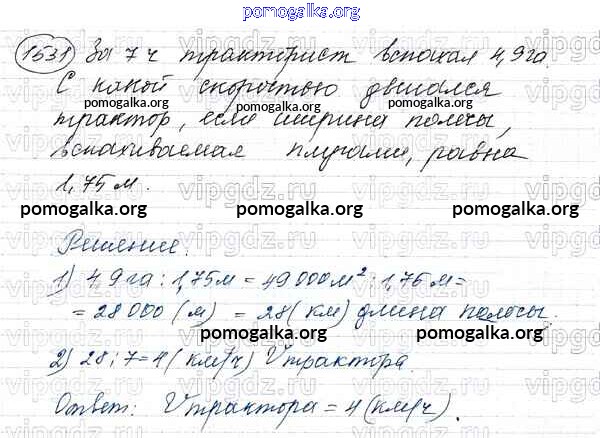 pomogalka.org
1531 За 7 ч тракторист вспахал 4,9 га.
С какой скоростью двигался
pomogalka.org pomogalka.org pomogalka.org
трактор, если ширина полосы,
вспахиваемая плугами, равна
1,75 м.
vipgdz.ru vipgdz.ru vipgdz.ru
pomogalka.org pomogalka.org pomogalka.org
Решение.
1) 4,9 га : 1,75 м = 49 000 м² : 1,75 м =
= 28 000 (м) = 28 (км) длина полосы.
pomogalka.org pomogalka.org pomogalka.org
2) 28 : 7 = 4 (км/ч) V трактора.
Ответ: V трактора = 4 (км/ч).